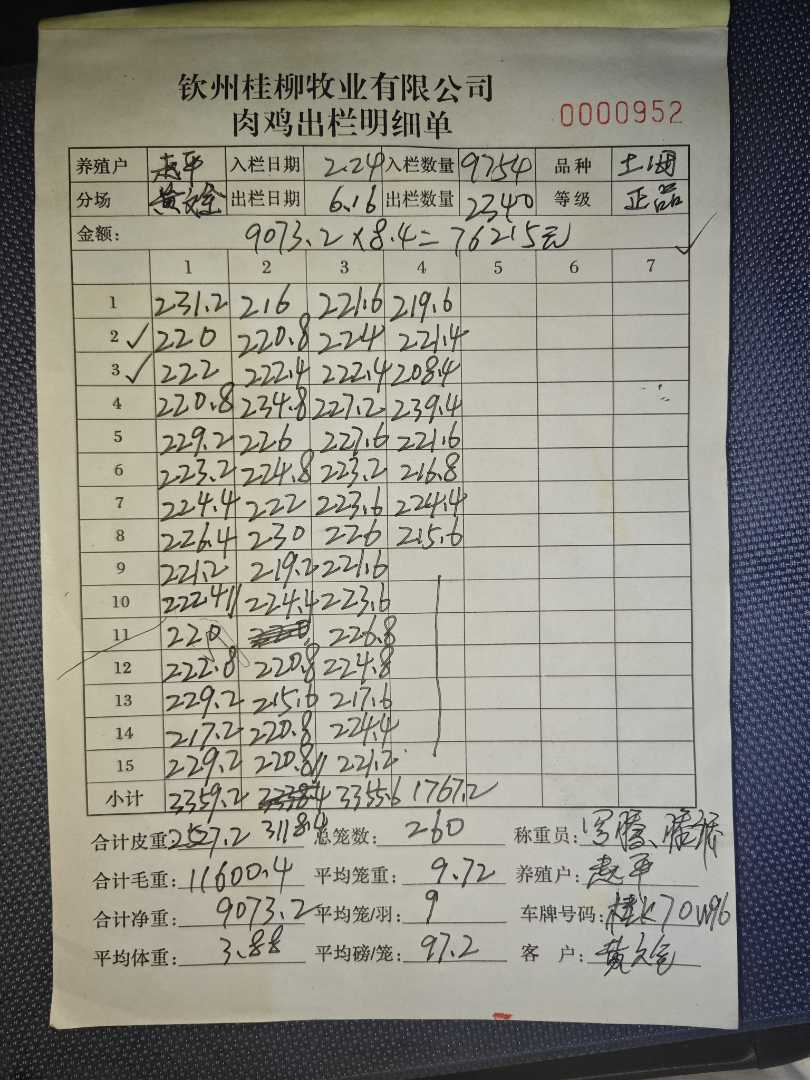 钦州桂柳牧业有限公司
肉鸡出栏明细单 0000952
养殖户 入栏日期 2.24 入栏数量 9754 品种 土
分场 出栏日期 6.16 出栏数量 2340 等级 正品
金额: 9073.2×8.4=76215元
1 2 3 4 5 6 7
1 231.2 216 221.6 219.6
2 ✓ 220 220.8 224 221.4
3 ✓ 222 222.4 222.4 208.4
4 220.8 234.8 227.2 239.4
5 229.2 226 227.6 221.6
6 223.2 224.8 223.2 216.8
7 224.4 222 223.6 224.4
8 226.4 230 226 215.6
9 221.2 219.2 221.6
10 222.4 224.4 223.6
11 220 226.8
12 222.8 220.8 224.8
13 229.2 215.6 217.6
14 217.2 220.8 224.4
15 229.2 220.8 221.2
小计 3359.2 3355.6 1767.2
3118.4
合计皮重: 2527.2 总笼数: 260 称重员:
合计毛重: 11600.4 平均笼重: 9.72 养殖户:
合计净重: 9073.2 平均笼/羽: 9 车牌号码: 桂K70W96
平均体重: 3.88 平均磅/笼: 97.2 客 户: